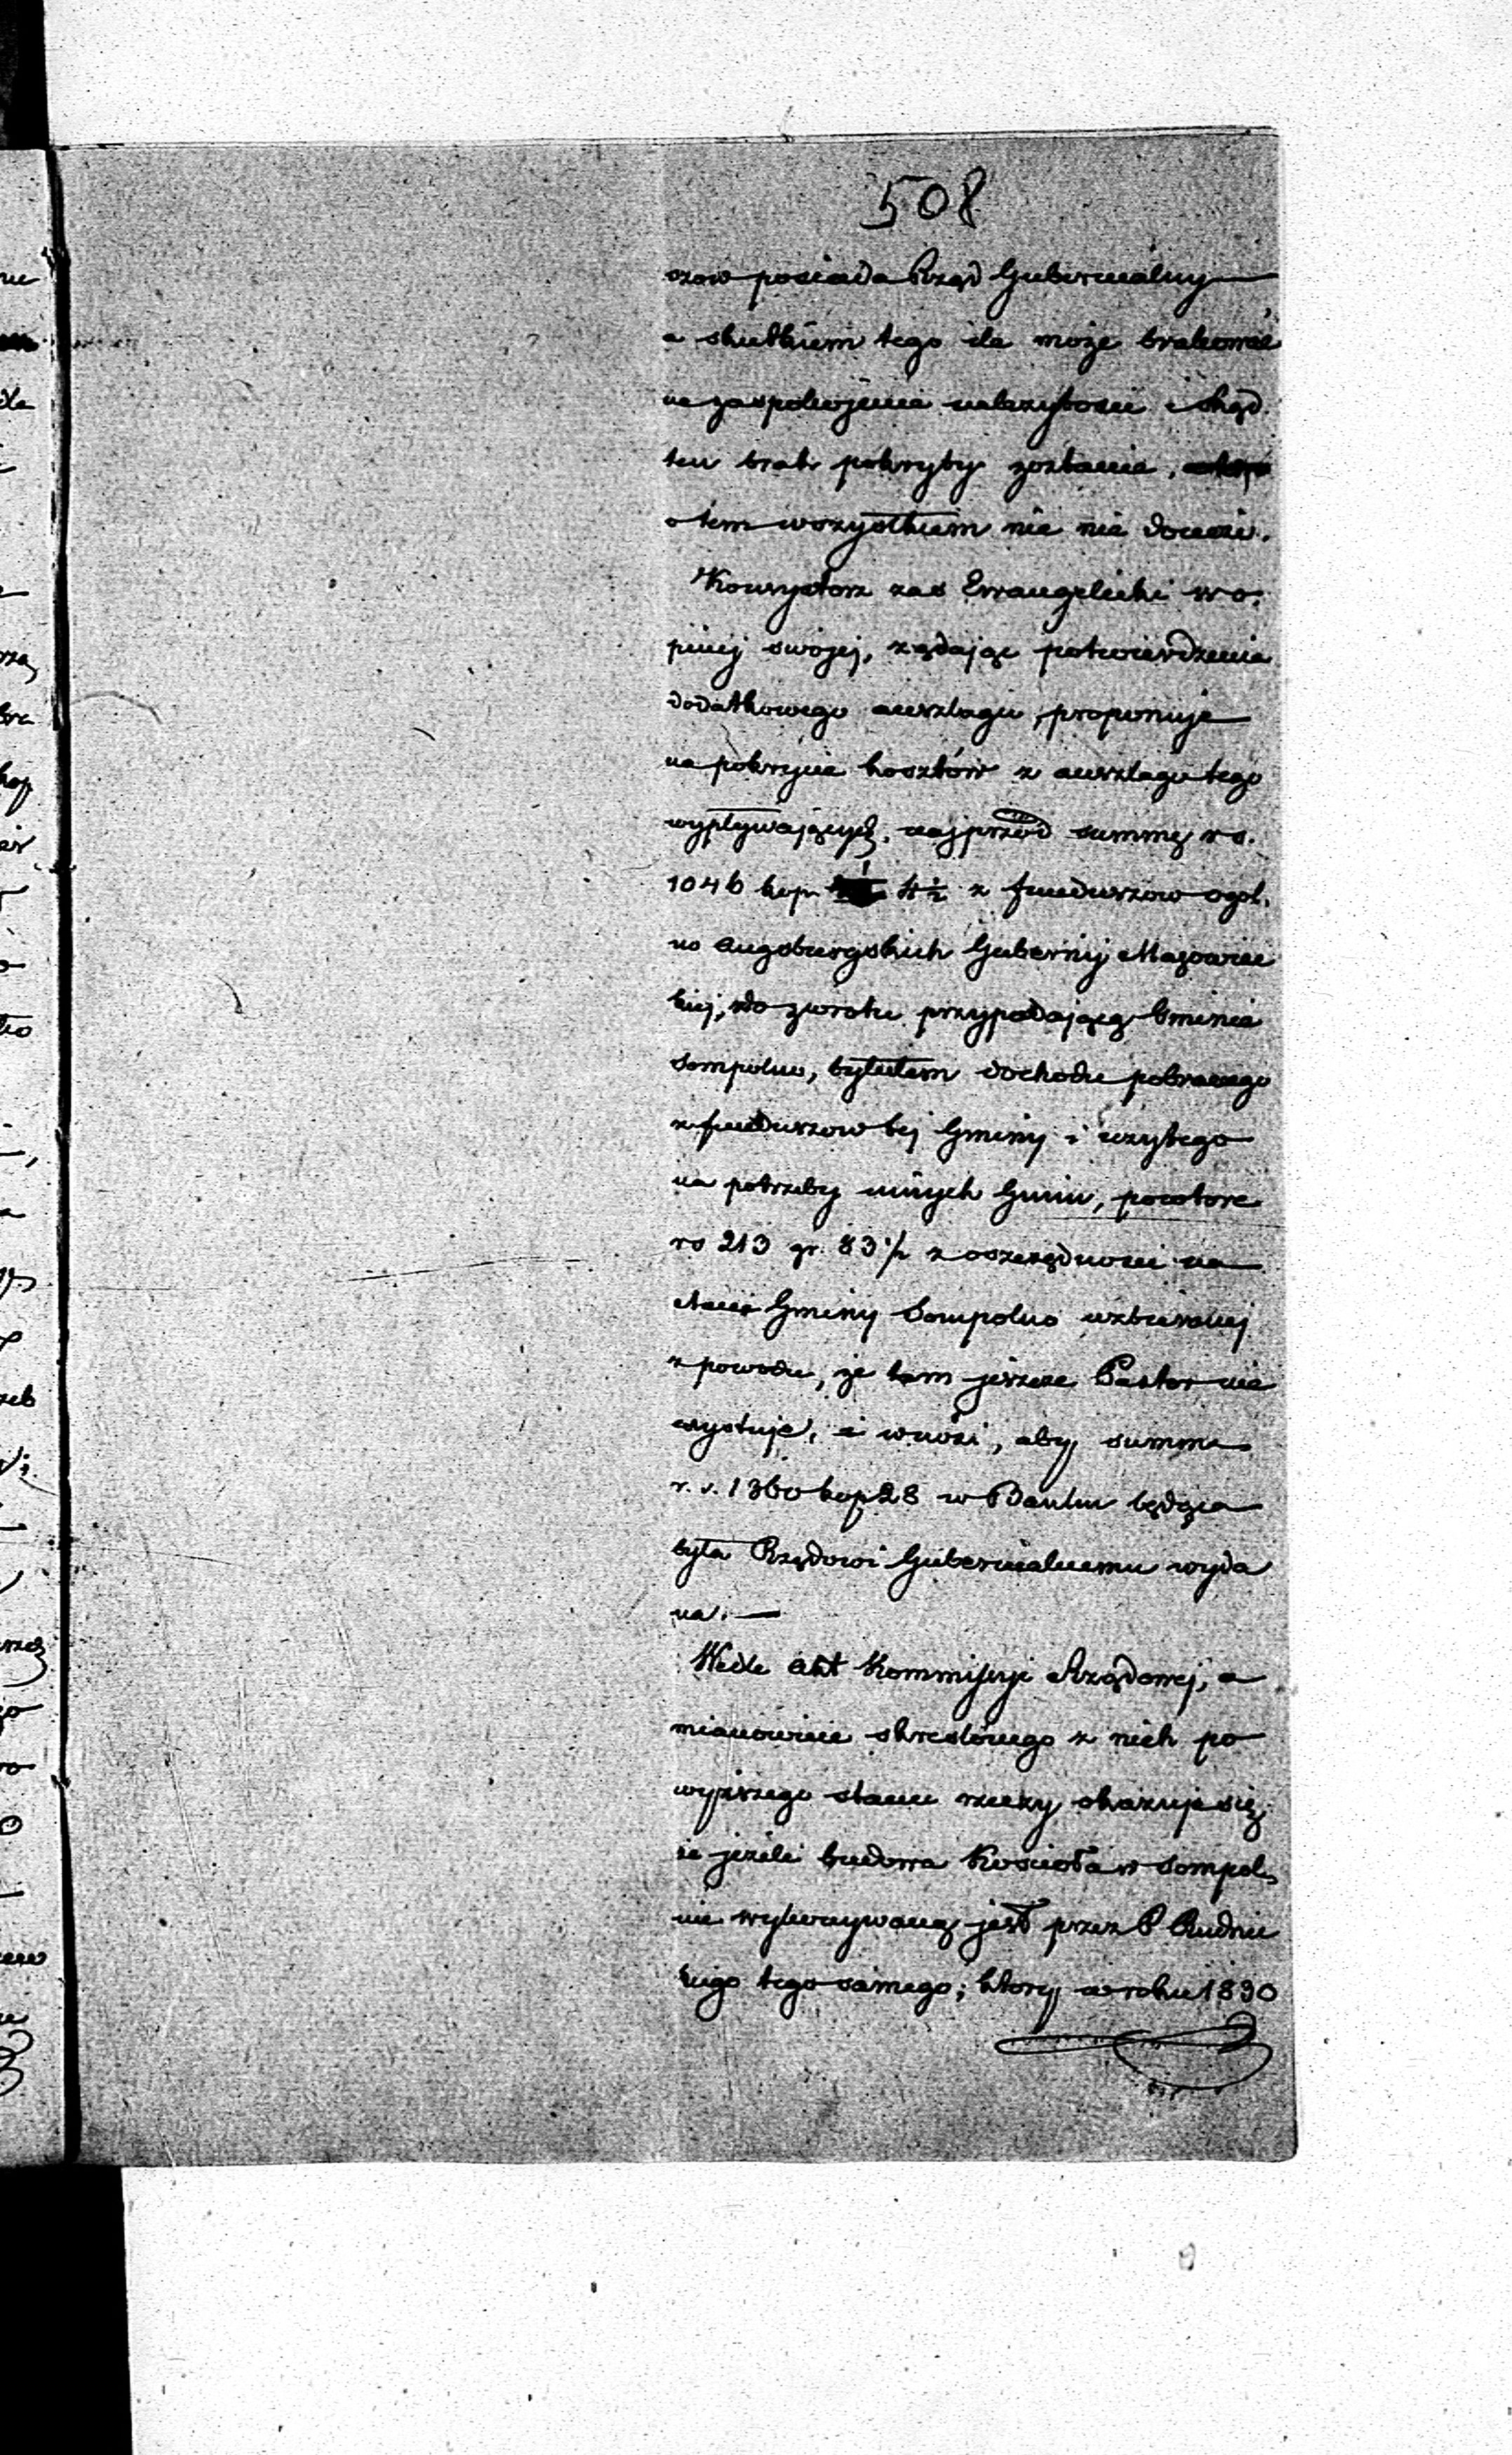 508
szow posiada Rząd Gubernialny
a skutkiem tego ile może brakować
na zaspokojenie należytości i skąd
ten brak pokryty zostanie,
o tem wszystkiem nic nie donosi.
Konsystorz zaś Ewangelicki w o-
pinij swojej, żądając potwierdzenia
dodatkowego anszlagu, proponuje
na pokrycie kosztów z anszlagu tego
wypływających, najprzód summę rs.
1046 kop. 4½ z funduszow ogól-
no Augsburgskich Gubernij Mazowiec
kiej, do zwrotu przypadającą Gminie
Sompolno, tytułem dochodu pobranego
z funduszow tej Gminy i użytego
na potrzeby innych Gmin, powtore
rs 213 gr. 83½ z oszczędności na
etacie Gminy Sompolno uzbieranej
z powodu, że tam jeszcze Pastor nie
exystuje, i wnosi, aby summa
r. s. 1360 kop 28 w Banku będąca
była Rządowi Gubernialnemu wyda
na. —
Wedle akt Kommissyi Rządowej, a
mianowicie skreślonego z nich po
wyższego stanu rzeczy okazuje się,
że jeżeli budowa Kościoła w Sompol-
nie wykonywaną jest przez P. Rudnic
kiego tego samego; który w roku 1830